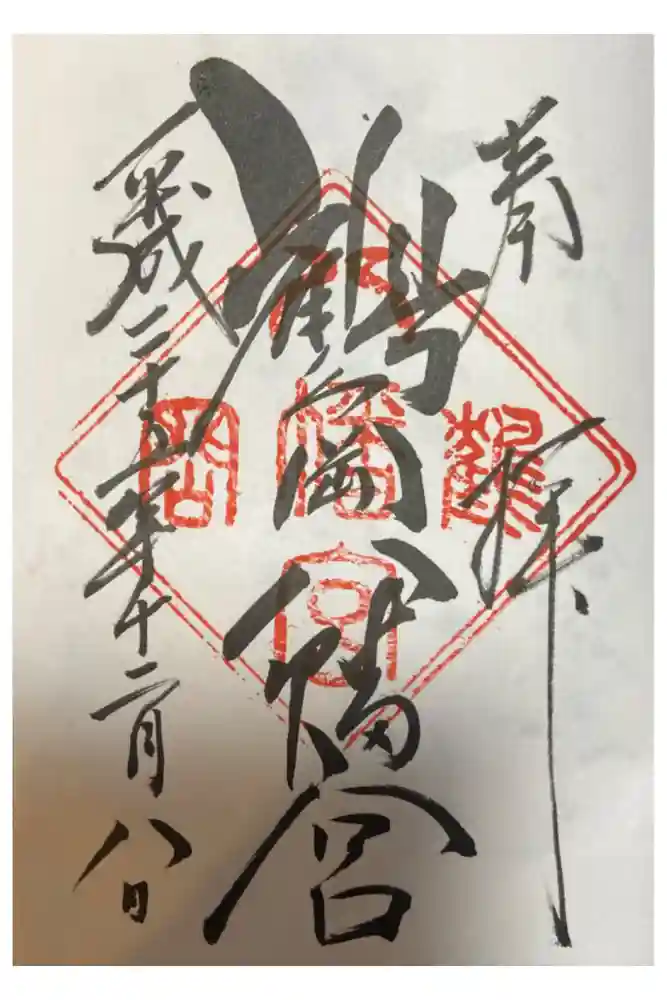 奉拝
鶴岡八幡宮
平成二十五年十二月八日
鶴
八
幡
宮
岡